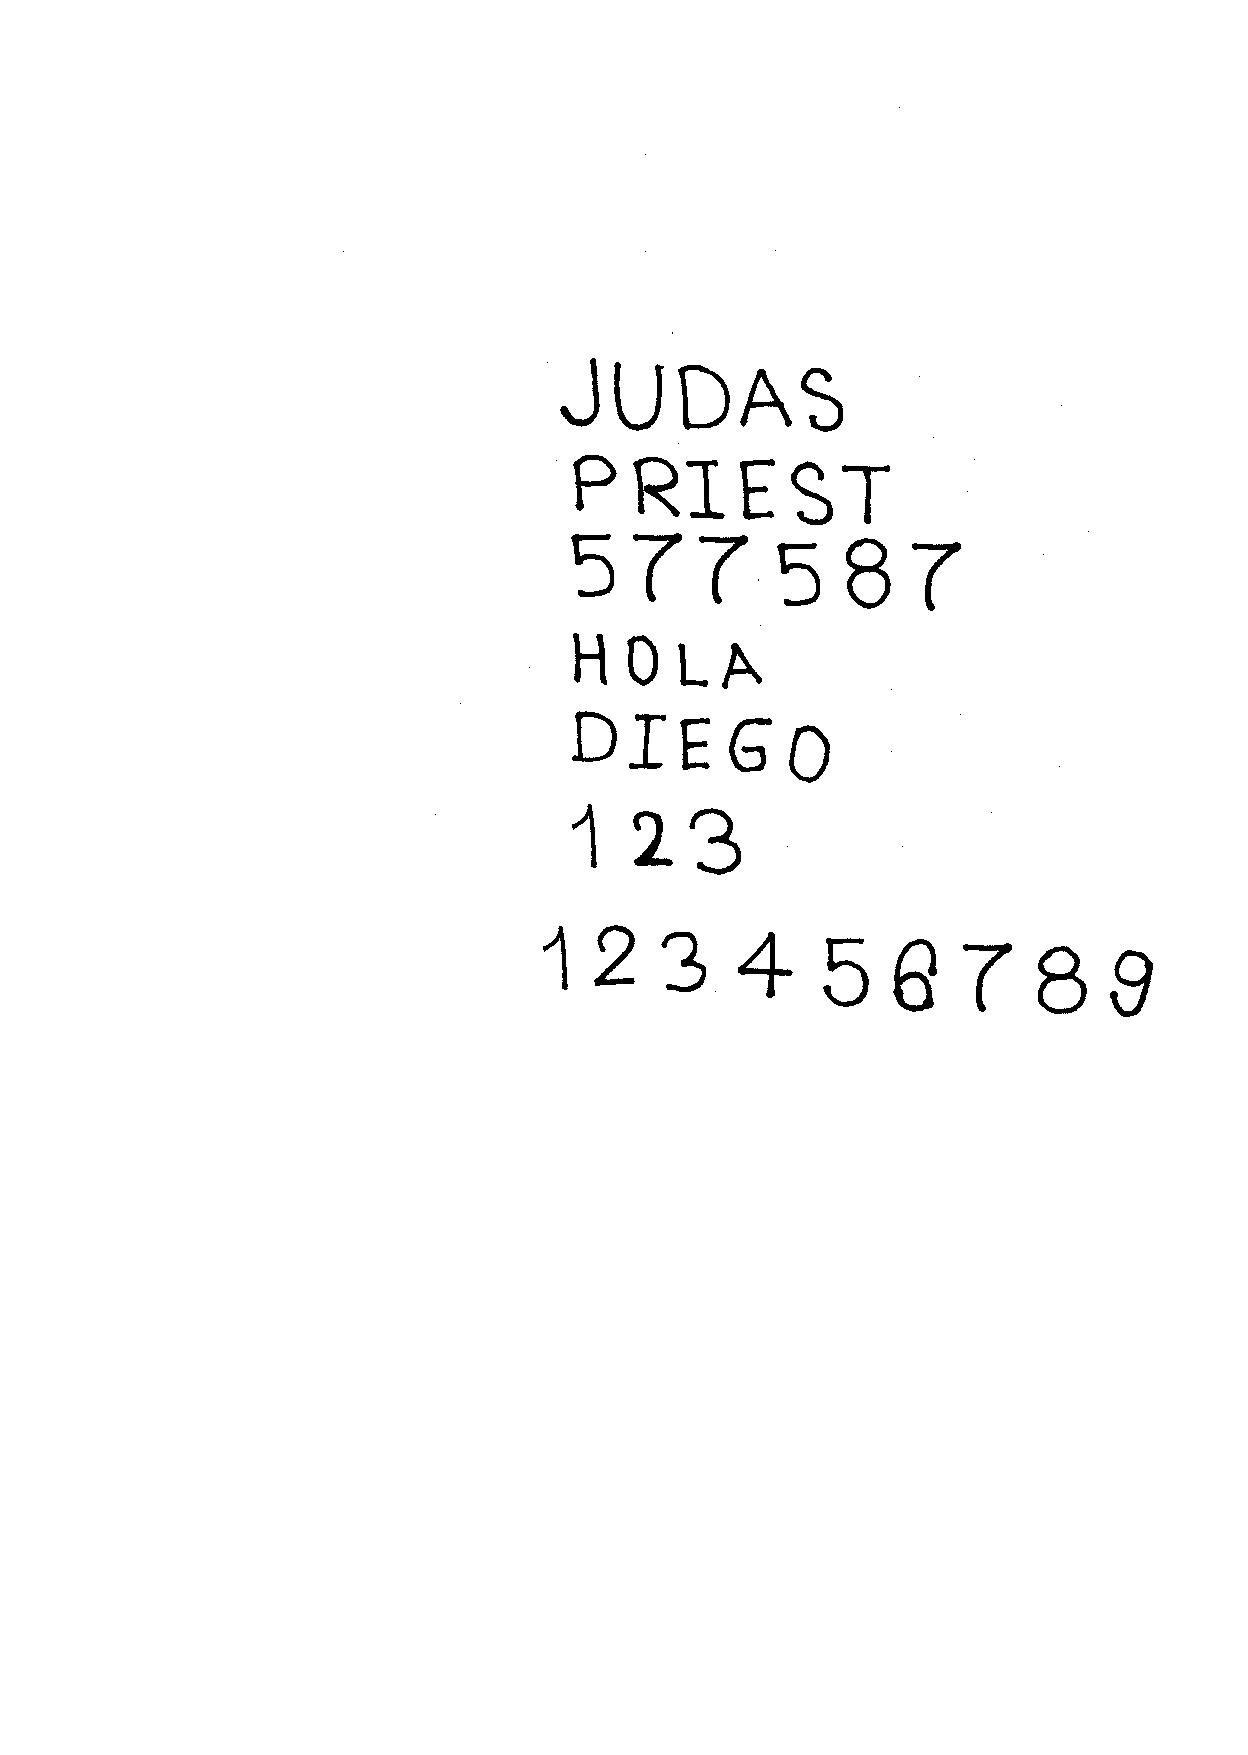 JUDAS
PRIEST
577587
HOLA
DIEGO
123
123456789